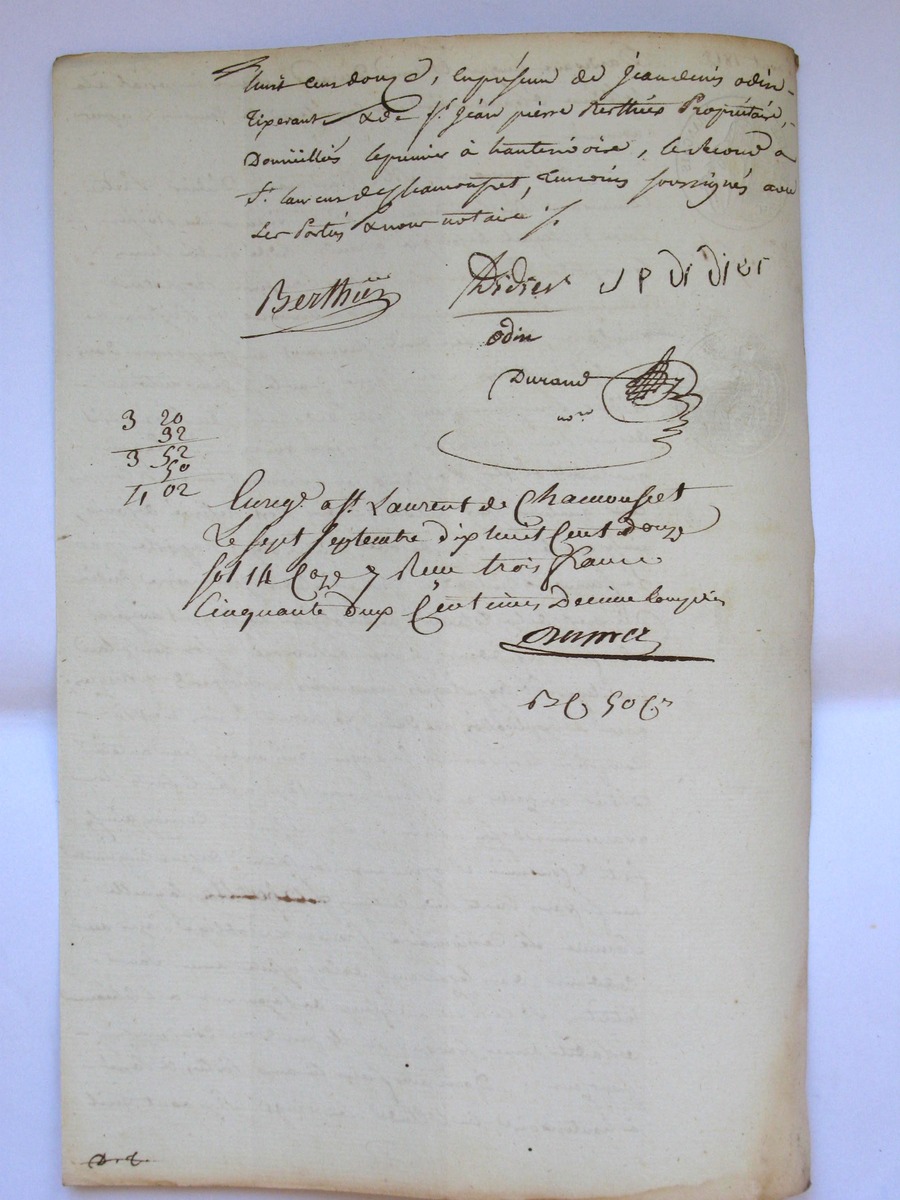 huit cens douze, En présence de Jean denis odin
Tixerant & de Sr. Jean pierre Berthier Propriétaire,
Domiciliés le premier à hauterivoire, le second a
St. Laurens de Chamousset, Temoins soussignés avec
Les Partis & nous notaire
Berthier Didier J P Didier
odin
Durand
nore
3 20
32
3 52
50
4 02
Enregé a St. Laurent de Chamousset
Le sept Septembre dix huit Cent douze
fol 14 Case 7 Reçu trois francs
Cinquante deux Centimes Decime Compris
50 Cs